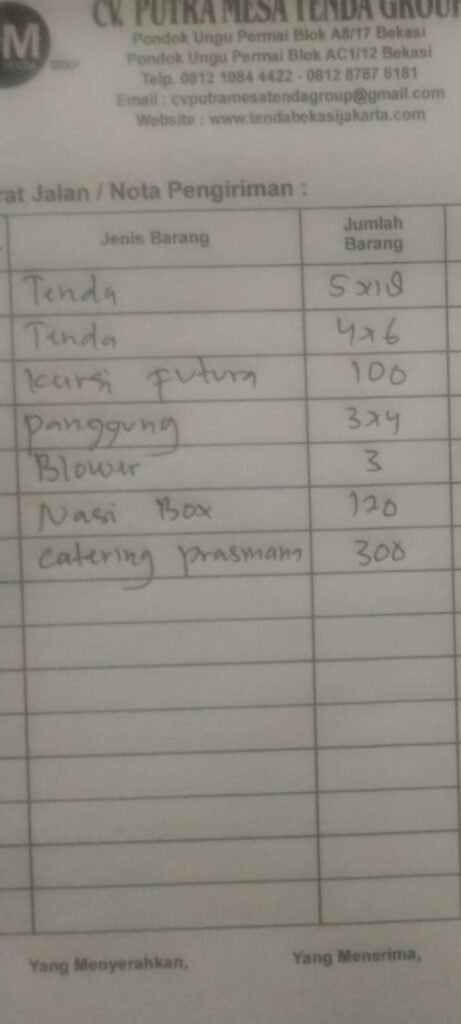 M
CV. PUTRA MESA TENDA GROUP
Pondok Ungu Permai Blok A8/17 Bekasi
Pondok Ungu Permai Blok AC1/12 Bekasi
Telp. 0812 1084 4422 - 0812 8787 6181
Email : cvputramesatendagroup@gmail.com
Website : www.tendabekasijakarta.com
rat Jalan / Nota Pengiriman :
Jenis Barang Jumlah Barang
Tenda 5x18
Tenda 4x6
Kursi Futura 100
Panggung 3x4
Blower 3
Nasi Box 120
Catering prasmam 300
Yang Menyerahkan, Yang Menerima,